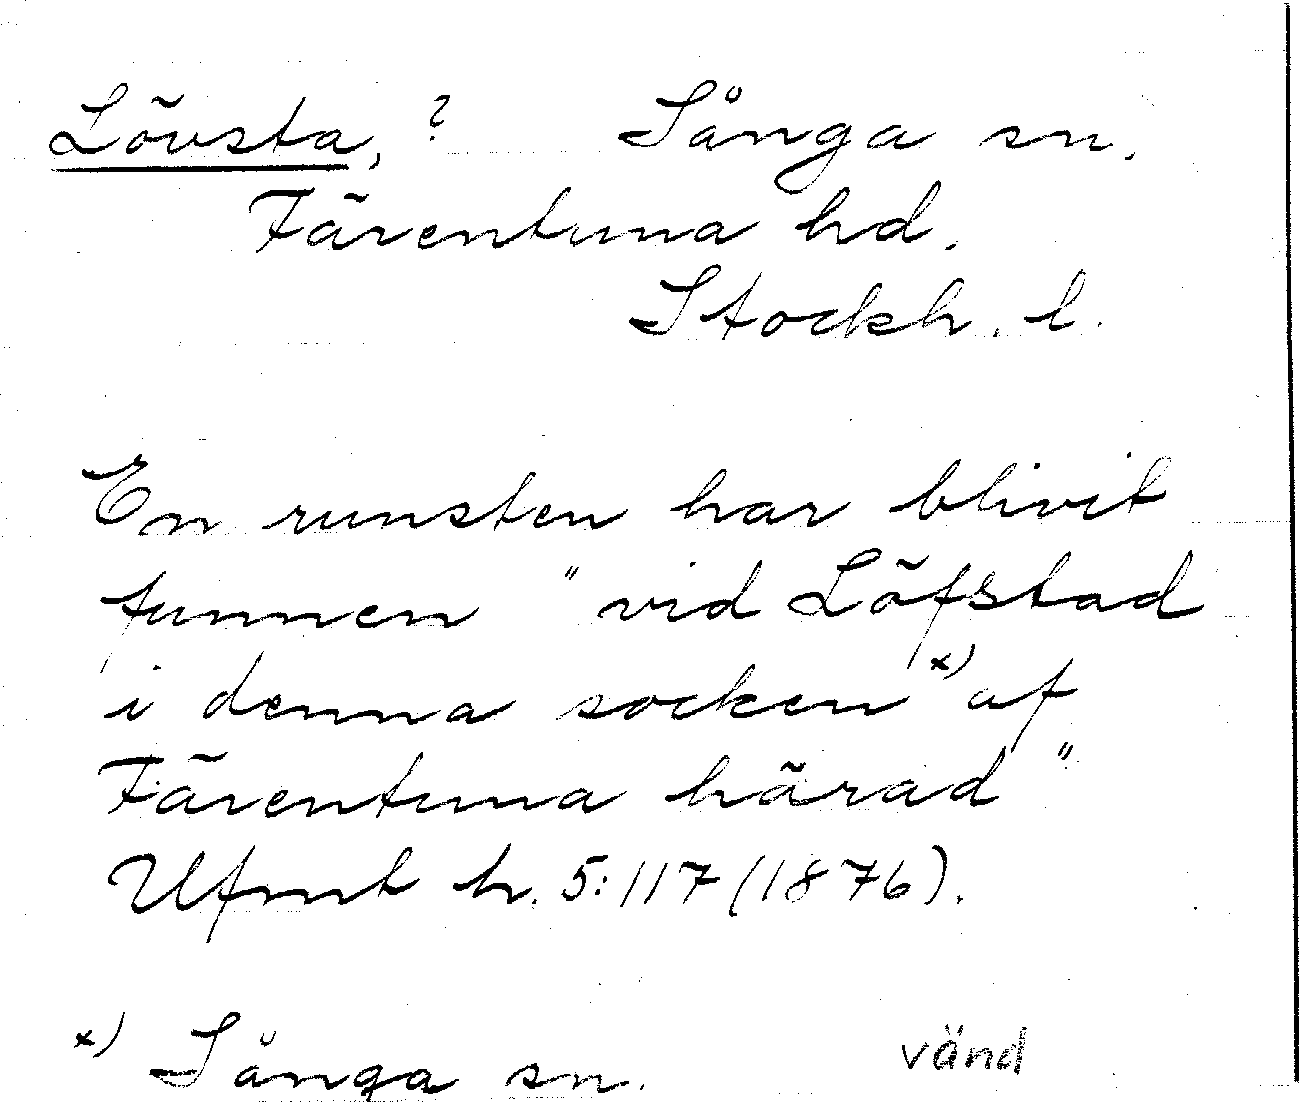 Lövsta, ? Sånga sn.
Färentuna hd.
Stockh. l.
En runsten har blivit
funnen "vid Löfstad
i denna socken"x) af
Färentuna härad"
Ufmt h. 5:117 (1876).
x) Sånga sn.
vänd